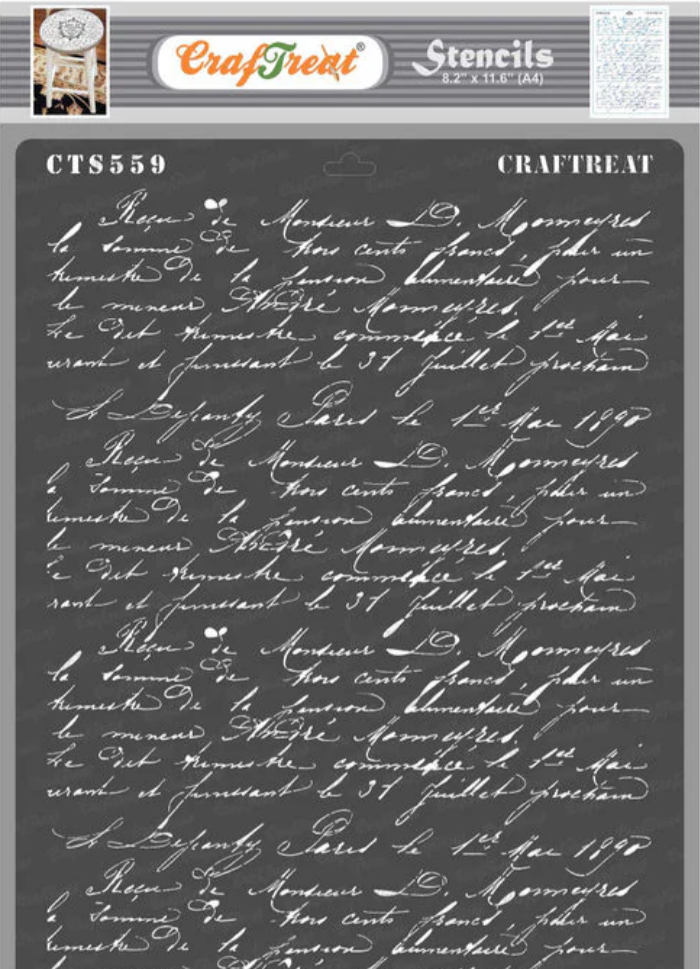 CrafTreat®
Stencils
8.2" x 11.6" (A4)
CTS559
CRAFTREAT
Reçu de Monsieur D. Monmeyres
la somme de trois cents francs, pour un
trimestre de la pension alimentaire pour
le mineur André Monmeyres.
Le dit trimestre commencé le 1er Mai
finissant le 31 Juillet prochain
Paris le 1er Mai 1890
Reçu de Monsieur D. Monmeyres
a somme de trois cents francs, pour un
trimestre de la pension alimentaire pour
le mineur André Monmeyres.
Le dit trimestre commencé le 1er Mai
rant et finissant le 31 Juillet prochain
Reçu de Monsieur D. Monmeyres
la somme de trois cents francs, pour un
trimestre de la pension alimentaire pour
le mineur André Monmeyres.
Le dit trimestre commencé le 1er Mai
finissant le 31 Juillet prochain
Paris le 1er Mai 1890
Reçu de Monsieur D. Monmeyres
a somme de trois cents francs, pour un
trimestre de la pension alimentaire pour